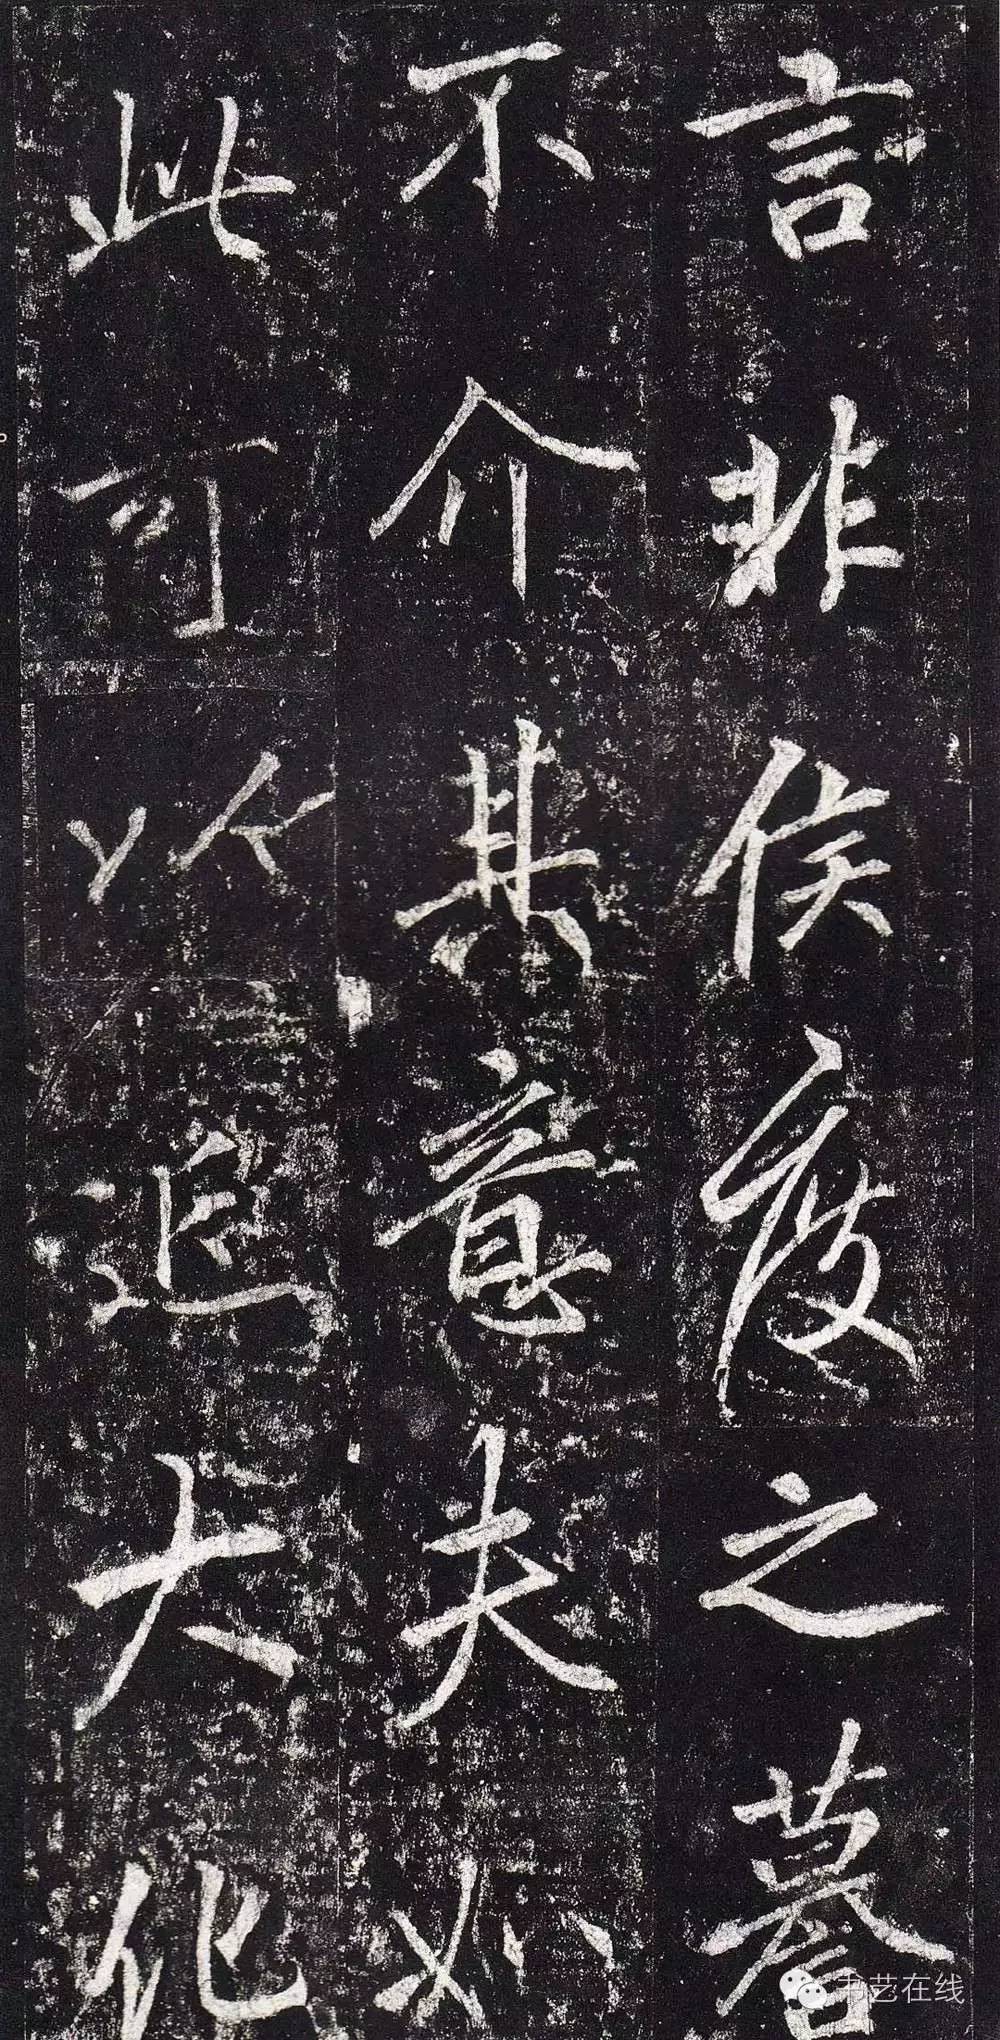 言非侯度之謩
不介其意夫如
此可以追大化
书艺在线